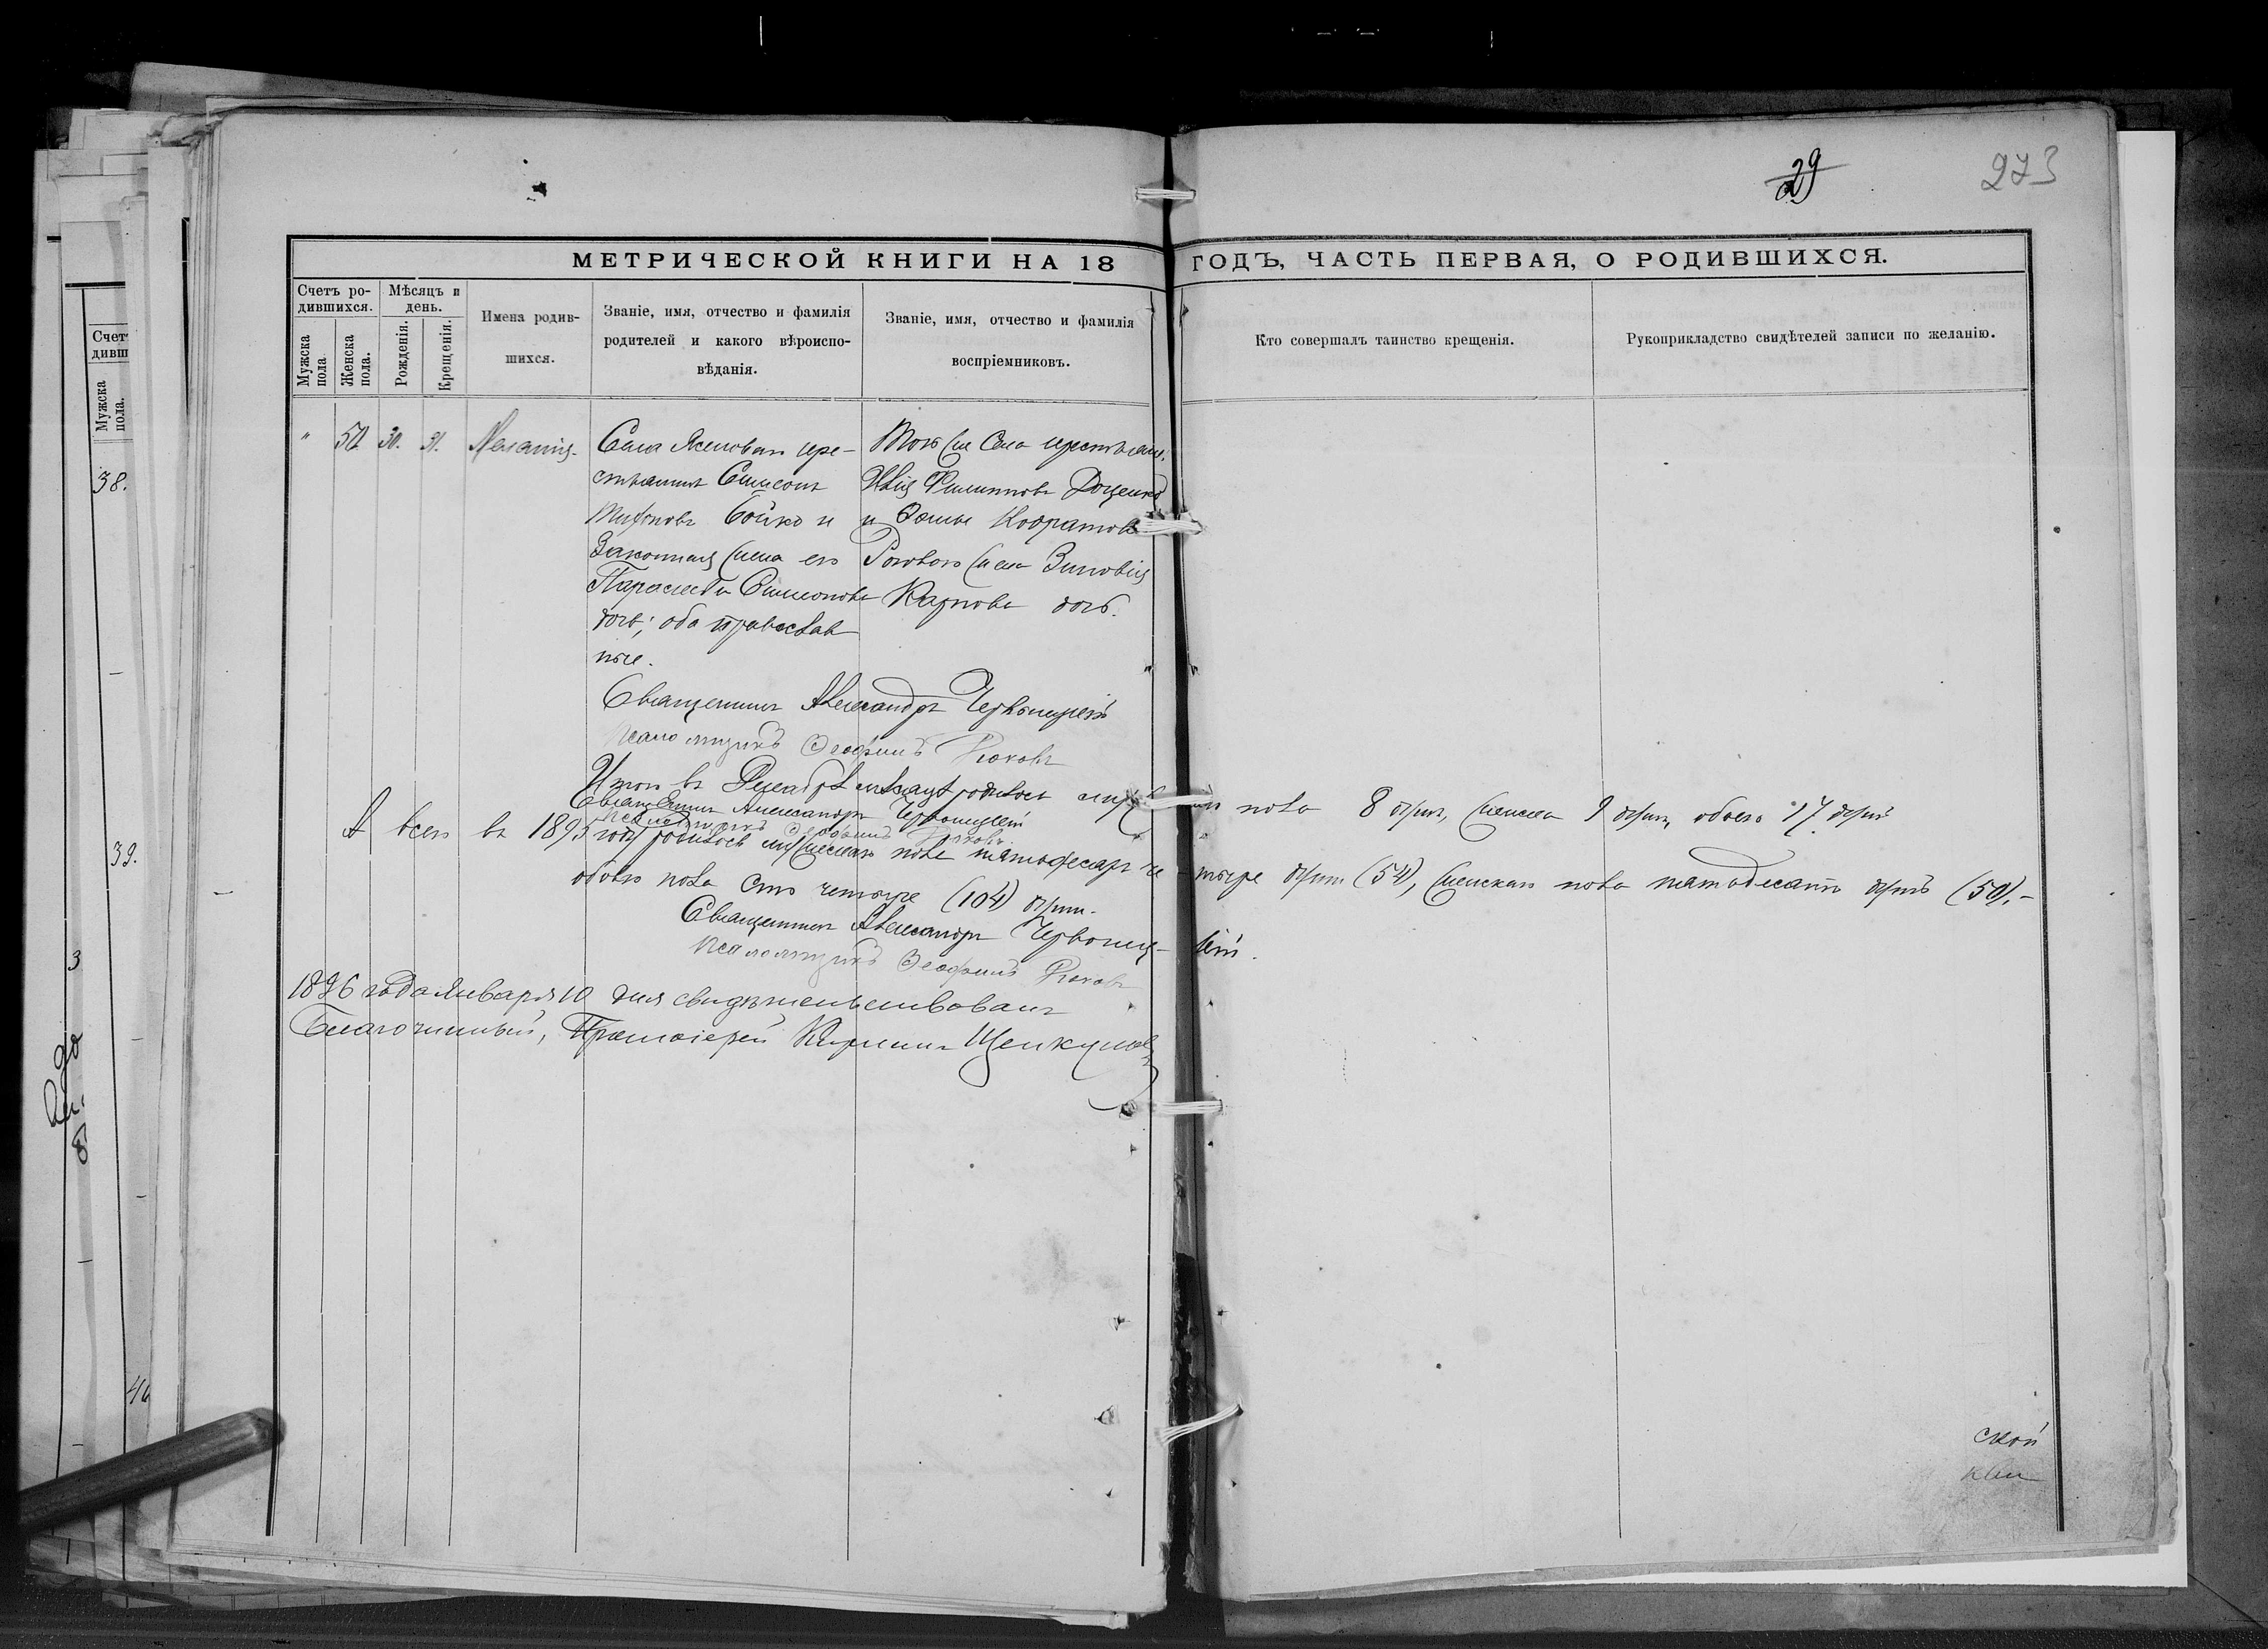 29
273
МЕТРИЧЕСКОЙ КНИГИ НА 18 ГОДЪ, ЧАСТЬ ПЕРВАЯ, О РОДИВШИХСЯ.
Счетъ родившихся.
Мужска пола.
Женска пола.
Мѣсяцъ и день.
Рожденія.
Крещенія.
Имена родившихся.
Званіе, имя, отчество и фамилія
родителей и какого вѣроиспо-
вѣданія.
Званіе, имя, отчество и фамилія
воспріемниковъ.
Кто совершалъ таинство крещенія.
Рукоприкладство свидѣтелей записи по желанію.
" 50 30. 31. Меланія.
Села кре-
стьянинъ Симеонъ
Бойко и
Законная жена его
Параскева Симеонова
дочь; оба православ
ные.
Того же Села крестьянин.
Илія Филипповъ Доценко
и
жена Зиновія
Карпова дочь.
Священникъ Александръ
Псаломщикъ Феофилъ
Итого въ Декабрѣ мѣсяцѣ родилось мужеска пола 8 душъ, женска 9 душъ, обоего 17 душъ
Священникъ Александръ
Псаломщикъ Феофилъ
А всего въ 1895 году родилось мужескаго пола пятьдесятъ четыре души (54), женскаго пола пятьдесятъ душъ (50).-
обоего пола сто четыре (104) души.
Священникъ Александръ
Псаломщикъ Феофилъ
1896 года Января 10 дня свидѣтельствовалъ
Благочинный, Протоіерей Кириллъ
ской
кни
Счет
дивш
Мужска пола.
38.
39.
3